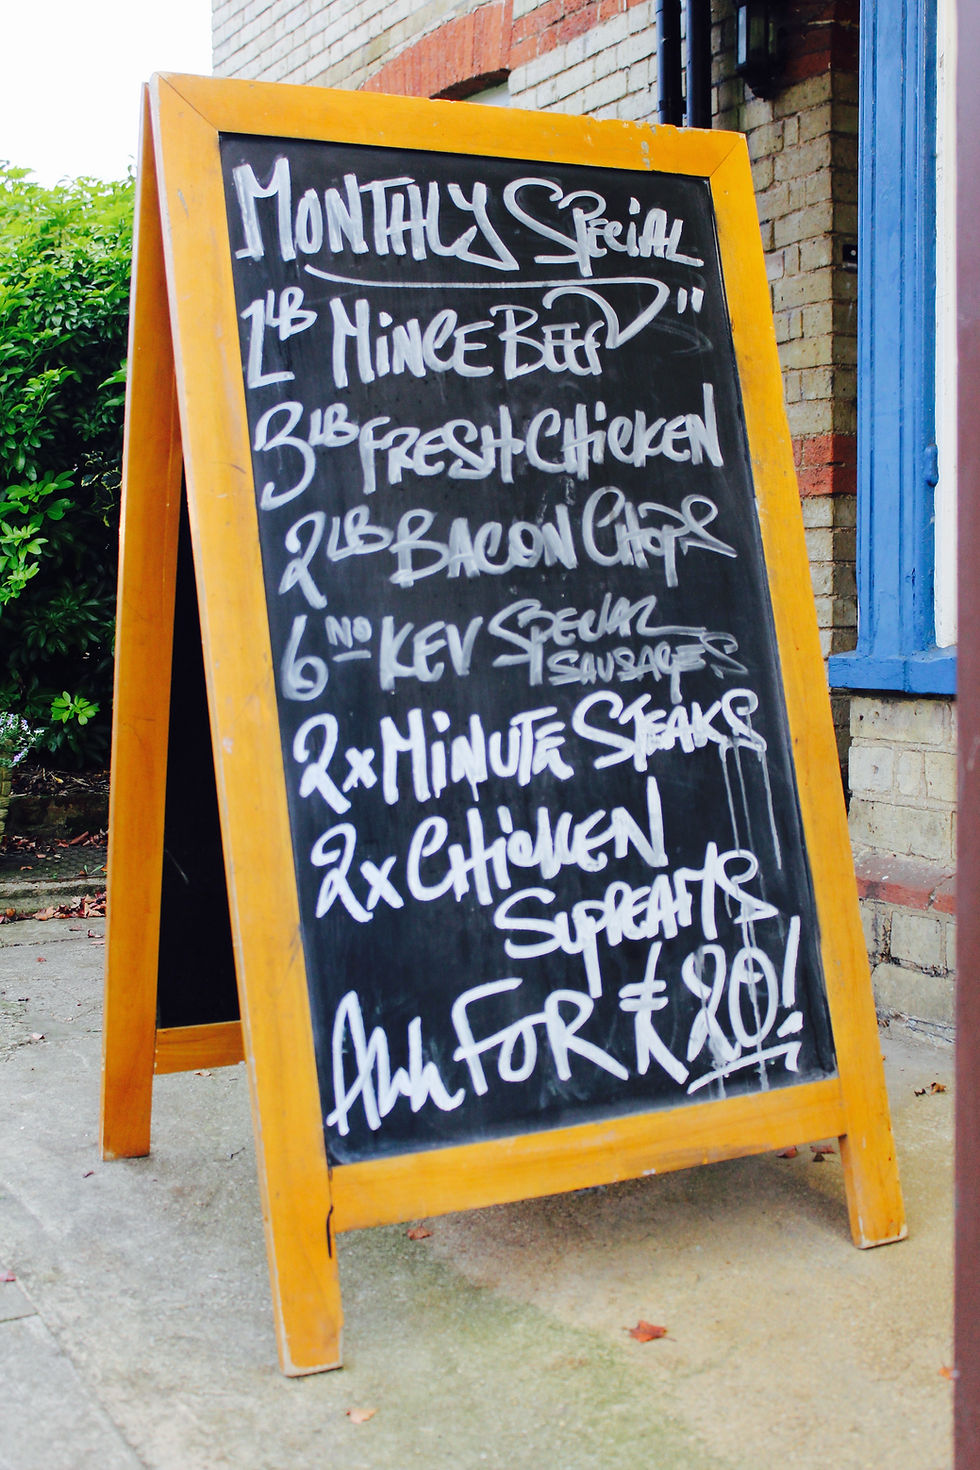 MONTHLY SPECIAL
1LB MINCE BEEF "
3LB FRESH CHICKEN
2LB BACON CHOPS
6 NO KEV SPECIAL
SAUSAGES
2x MINUTE STEAKS
2x CHICKEN
SUPREAMS
ALL FOR £20!